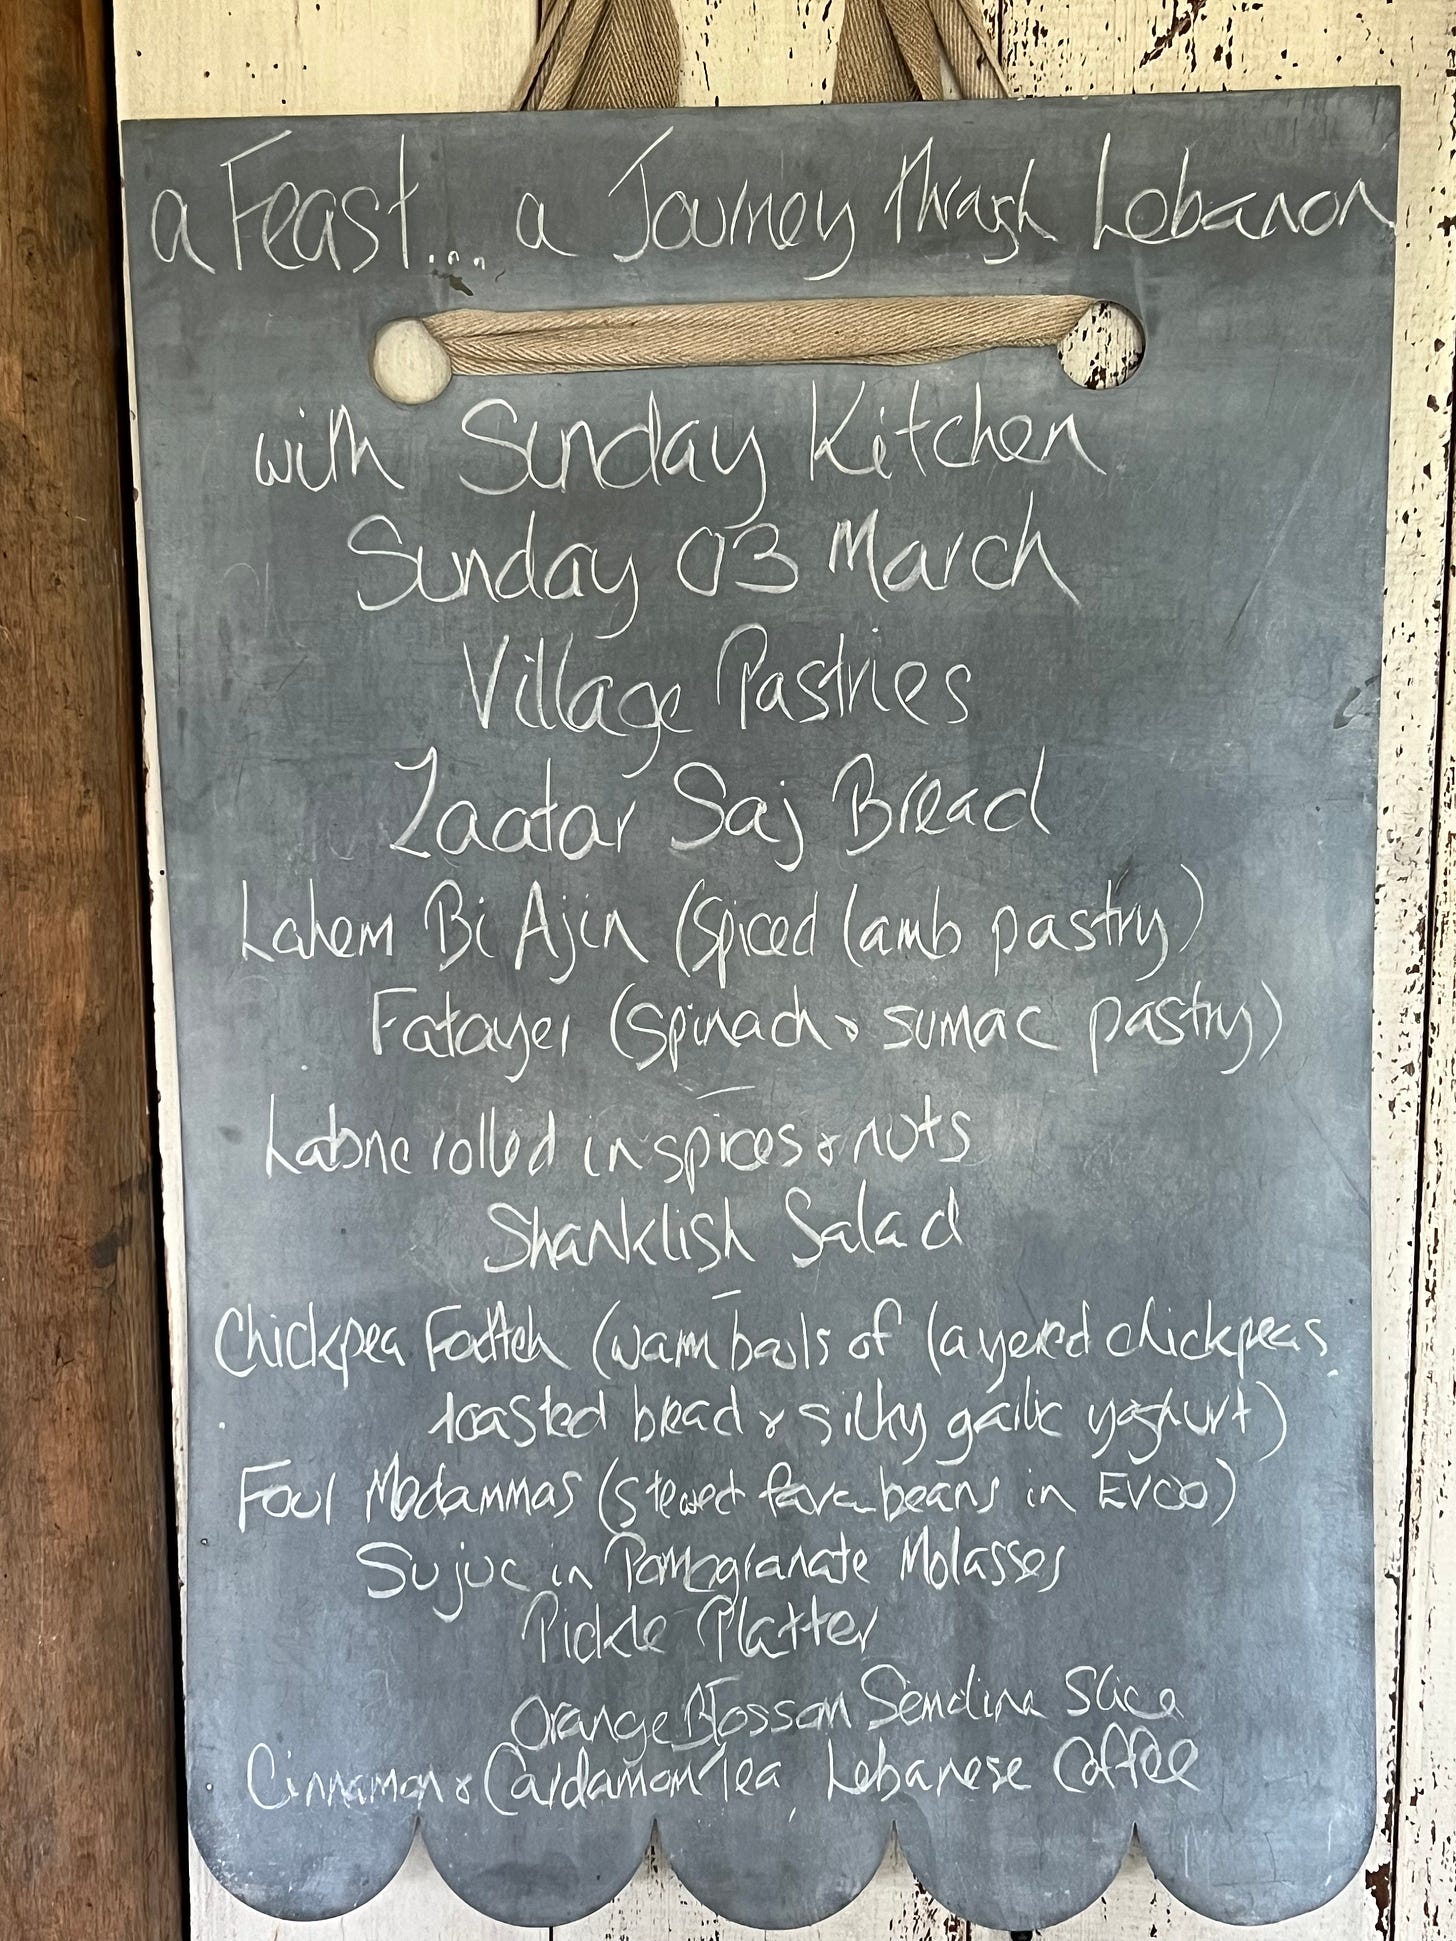 a Feast... a Journey through Lebanon
with Sunday Kitchen
Sunday 03 March
Village Pastries
Zaatar Saj Bread
Lahem Bi Ajin (spiced lamb pastry)
Fatayer (spinach & sumac pastry)
Labne rolled in spices & nuts
Shanklish Salad
Chickpea Fatteh (warm bowls of layered chickpeas,
toasted bread & silky garlic yoghurt)
Foul Modammas (stewed fava beans in EVOO)
Sujuc in Pomogranate Molasses
Pickle Platter
Orange Blossom Semolina Slice
Cinnamon & Cardamom Tea, Lebanese Coffee